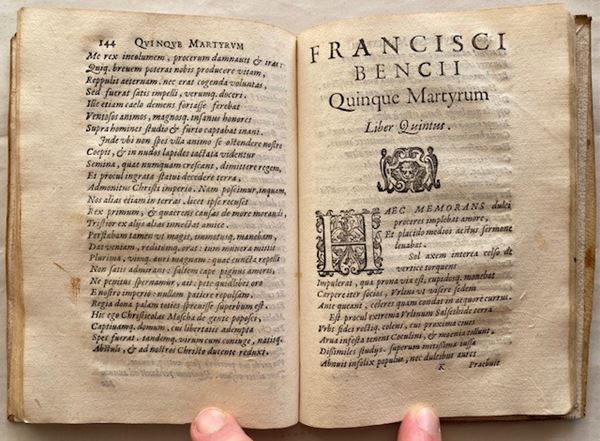 144 QVINQVE MARTYRVM
Me rex incolumem, procerum damnauit & iras:
Quiq. breuem poterat nobis producere vitam,
Reppulit aeternam. nec eras cogenda voluntas,
Sed fuerat satis impelli, verumq. doceri.
Ille etiam caelo demens fortasse ferebat
Ventosos animos, magnosq. insanus honores
Supra homines studio & furto captabat inani.
Inde vbi non spes vlla animo se ostendere nostro
Coepit, & in nudos lapides iactata videntur
Semina, quae numquam crescant, dimittere regem,
Et procul ingrata statui decedere terra,
Admonitus Christi imperio. Nam poscimur, inquam,
Nos alias etiam in terras. licet ipse recuset
Rex primum, & quaerens causas de more morandi,
Tristior ex alijs alias innectat amice.
Perstabam tamen vt magis, immotusq. manebam,
Dat veniam, reditumq. orat: tum munera mittit
Plurima, vimq. auri magnam: quae cuncta repelli
Non satis admirans: saltem cape pignus amoris,
Ne penitus spernamur, ait: pete quidlibes oro
E nostro imperio: nullam patiere repulsam.
Regia dona palam contentes spreuisse superbum est.
Hic ego Christicolas Moscha de gente poposce,
Captiuamq. domum, cui libertatis adempta
Spes fuerat. tandemq. virum cum coniuge, natisq.
Abstuli, & ad nostri Christo ducente reduxi.
FRANCISCI
BENCII
Quinque Martyrum
Liber Quintus.
HAEC MEMORANS dulci
proceres implebat amore,
Et placido medios aestus sermone
leuabat.
Sol axem interea celso de
vertice torquens
Impulerat, qua prona via est, cupidosq. monebat
Carpere iter socios, Vrlini vt visere sedem
Ante queant, celeres quam condat in aequore currus.
Est procul extrema Vrlinum Salsethide terra
Vrbs fides rectiq. colens, cui proxima cieus
Arua infesta tenent Coculini, & moenia tollunt,
Dissimiles studijs. superum mitissima iussa
Abnuit infelix populus, nec dulcibus aures
K Praebuit